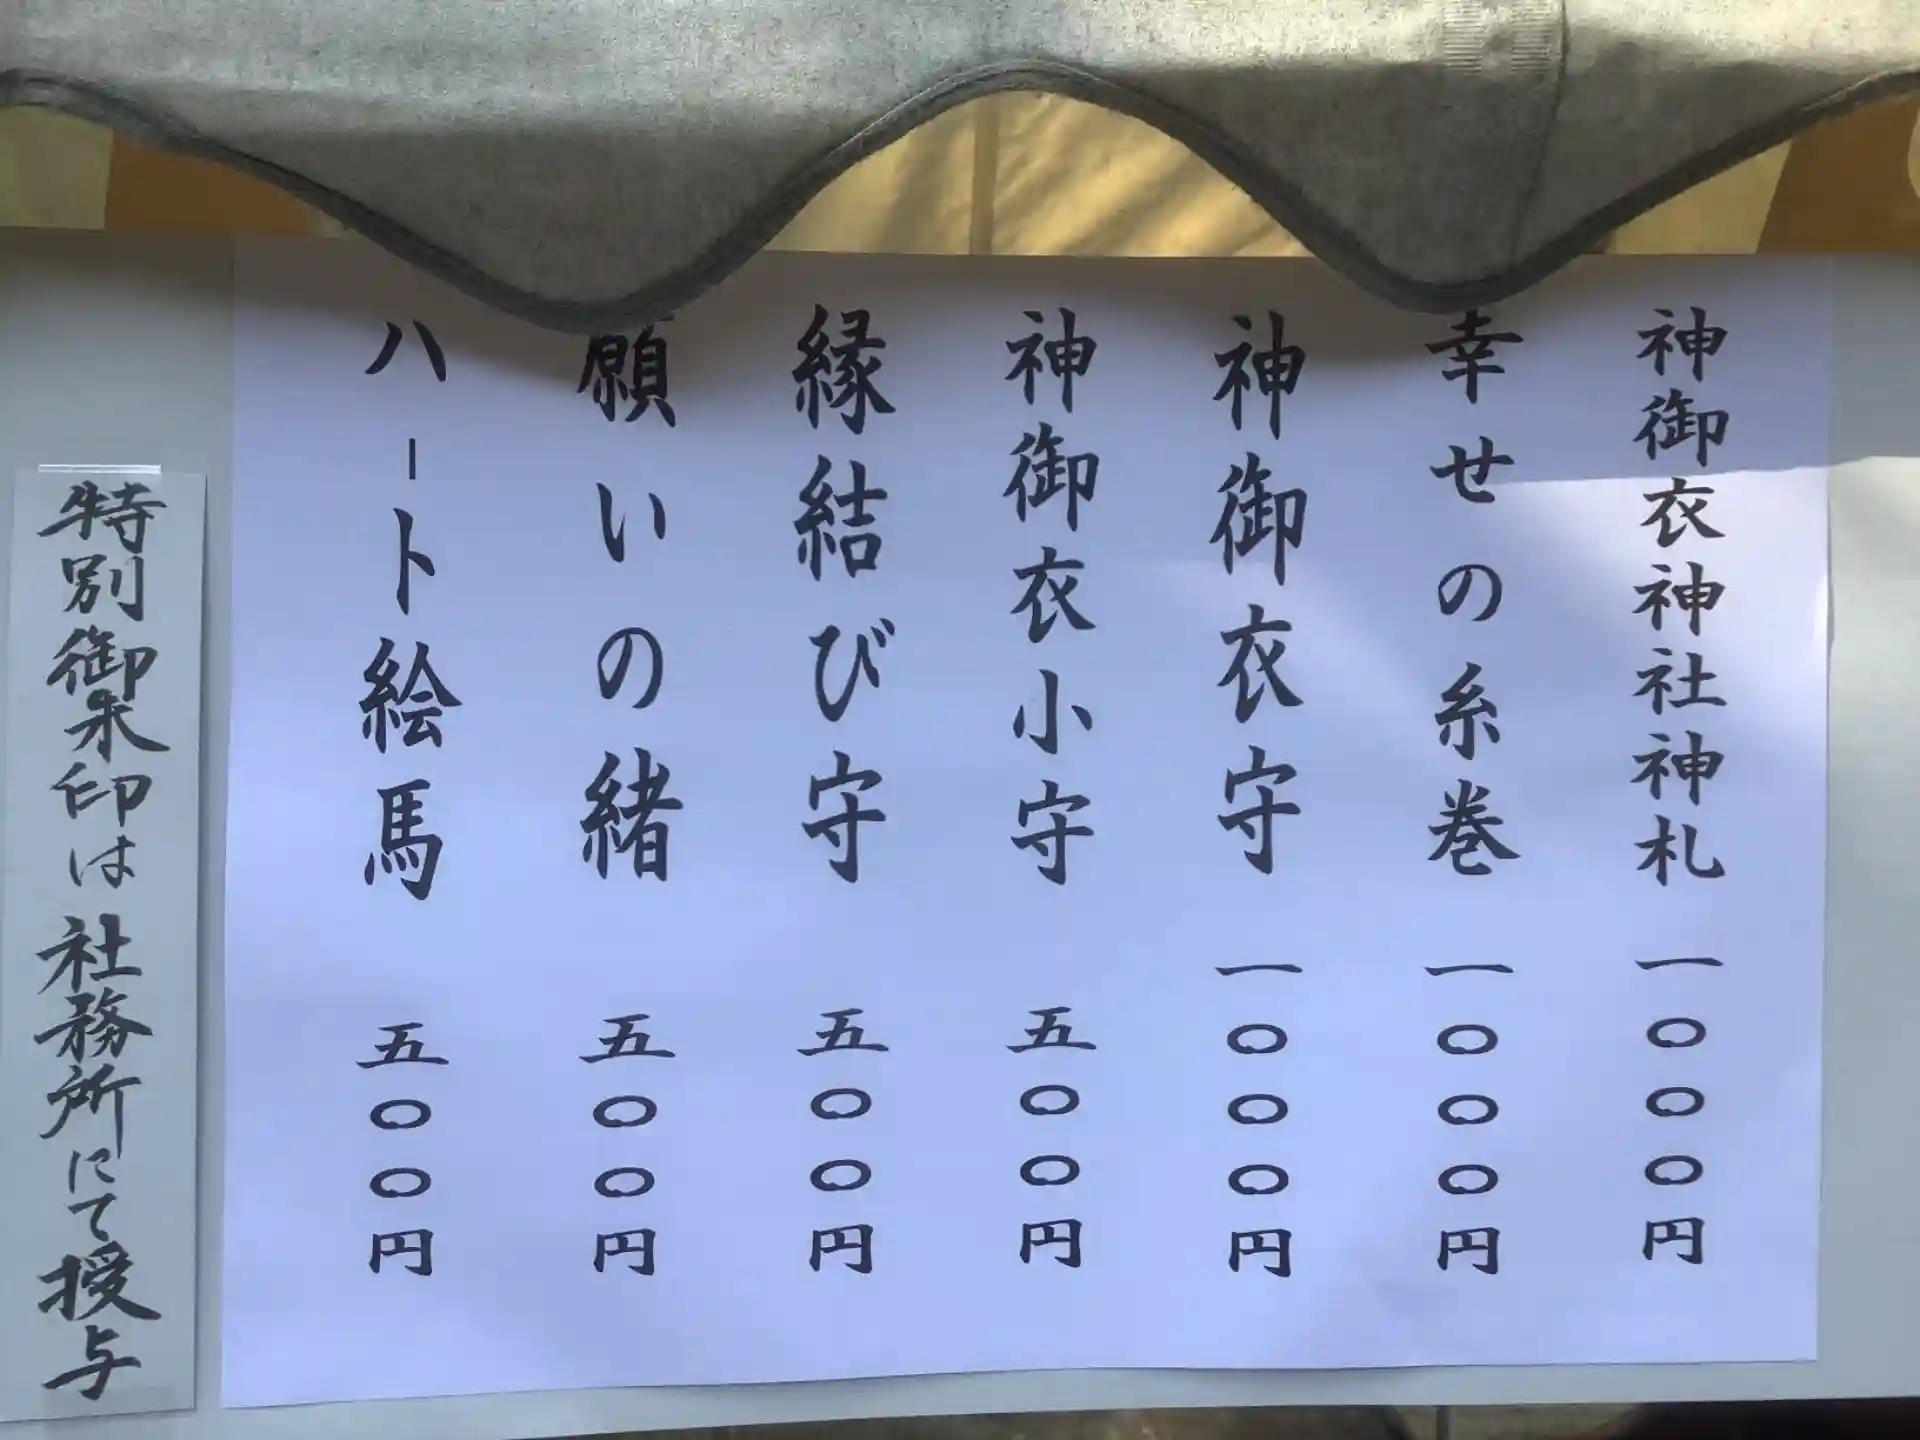 神御衣神社神札 一〇〇〇円
幸せの糸巻 一〇〇〇円
神御衣守 一〇〇〇円
神御衣小守 五〇〇円
縁結び守 五〇〇円
願いの緒 五〇〇円
ハート絵馬 五〇〇円
特別御朱印は社務所にて授与